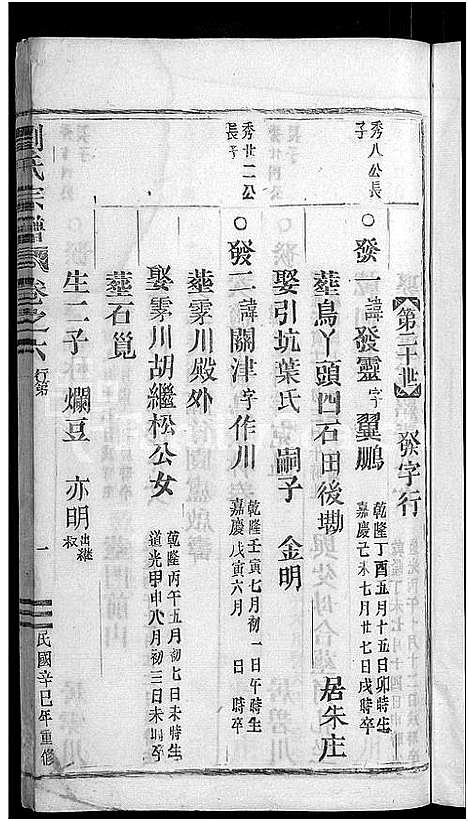 第三十世 癸字行
秀八公長子
○癸一 諱發靈 字翼鵬 乾隆丁酉五月十五日卯時生 嘉慶己未七月廿七日戌時卒
葬鳥丫頭四石田後塝 居朱庄
娶引坑葉氏 嗣子 金明
秀廿二公長子
○癸二 諱關津 字作川 乾隆壬寅七月初一日午時生 嘉慶戊寅六月 日 時卒
葬雩川殿外
娶雩川胡繼松公女 乾隆丙午五月初七日未時生 道光甲申八月初三日未時卒
葬石篼
生二子 爛豆 亦明出繼叔
劉氏宗譜 卷之六 行第 一 民國辛巳年重修